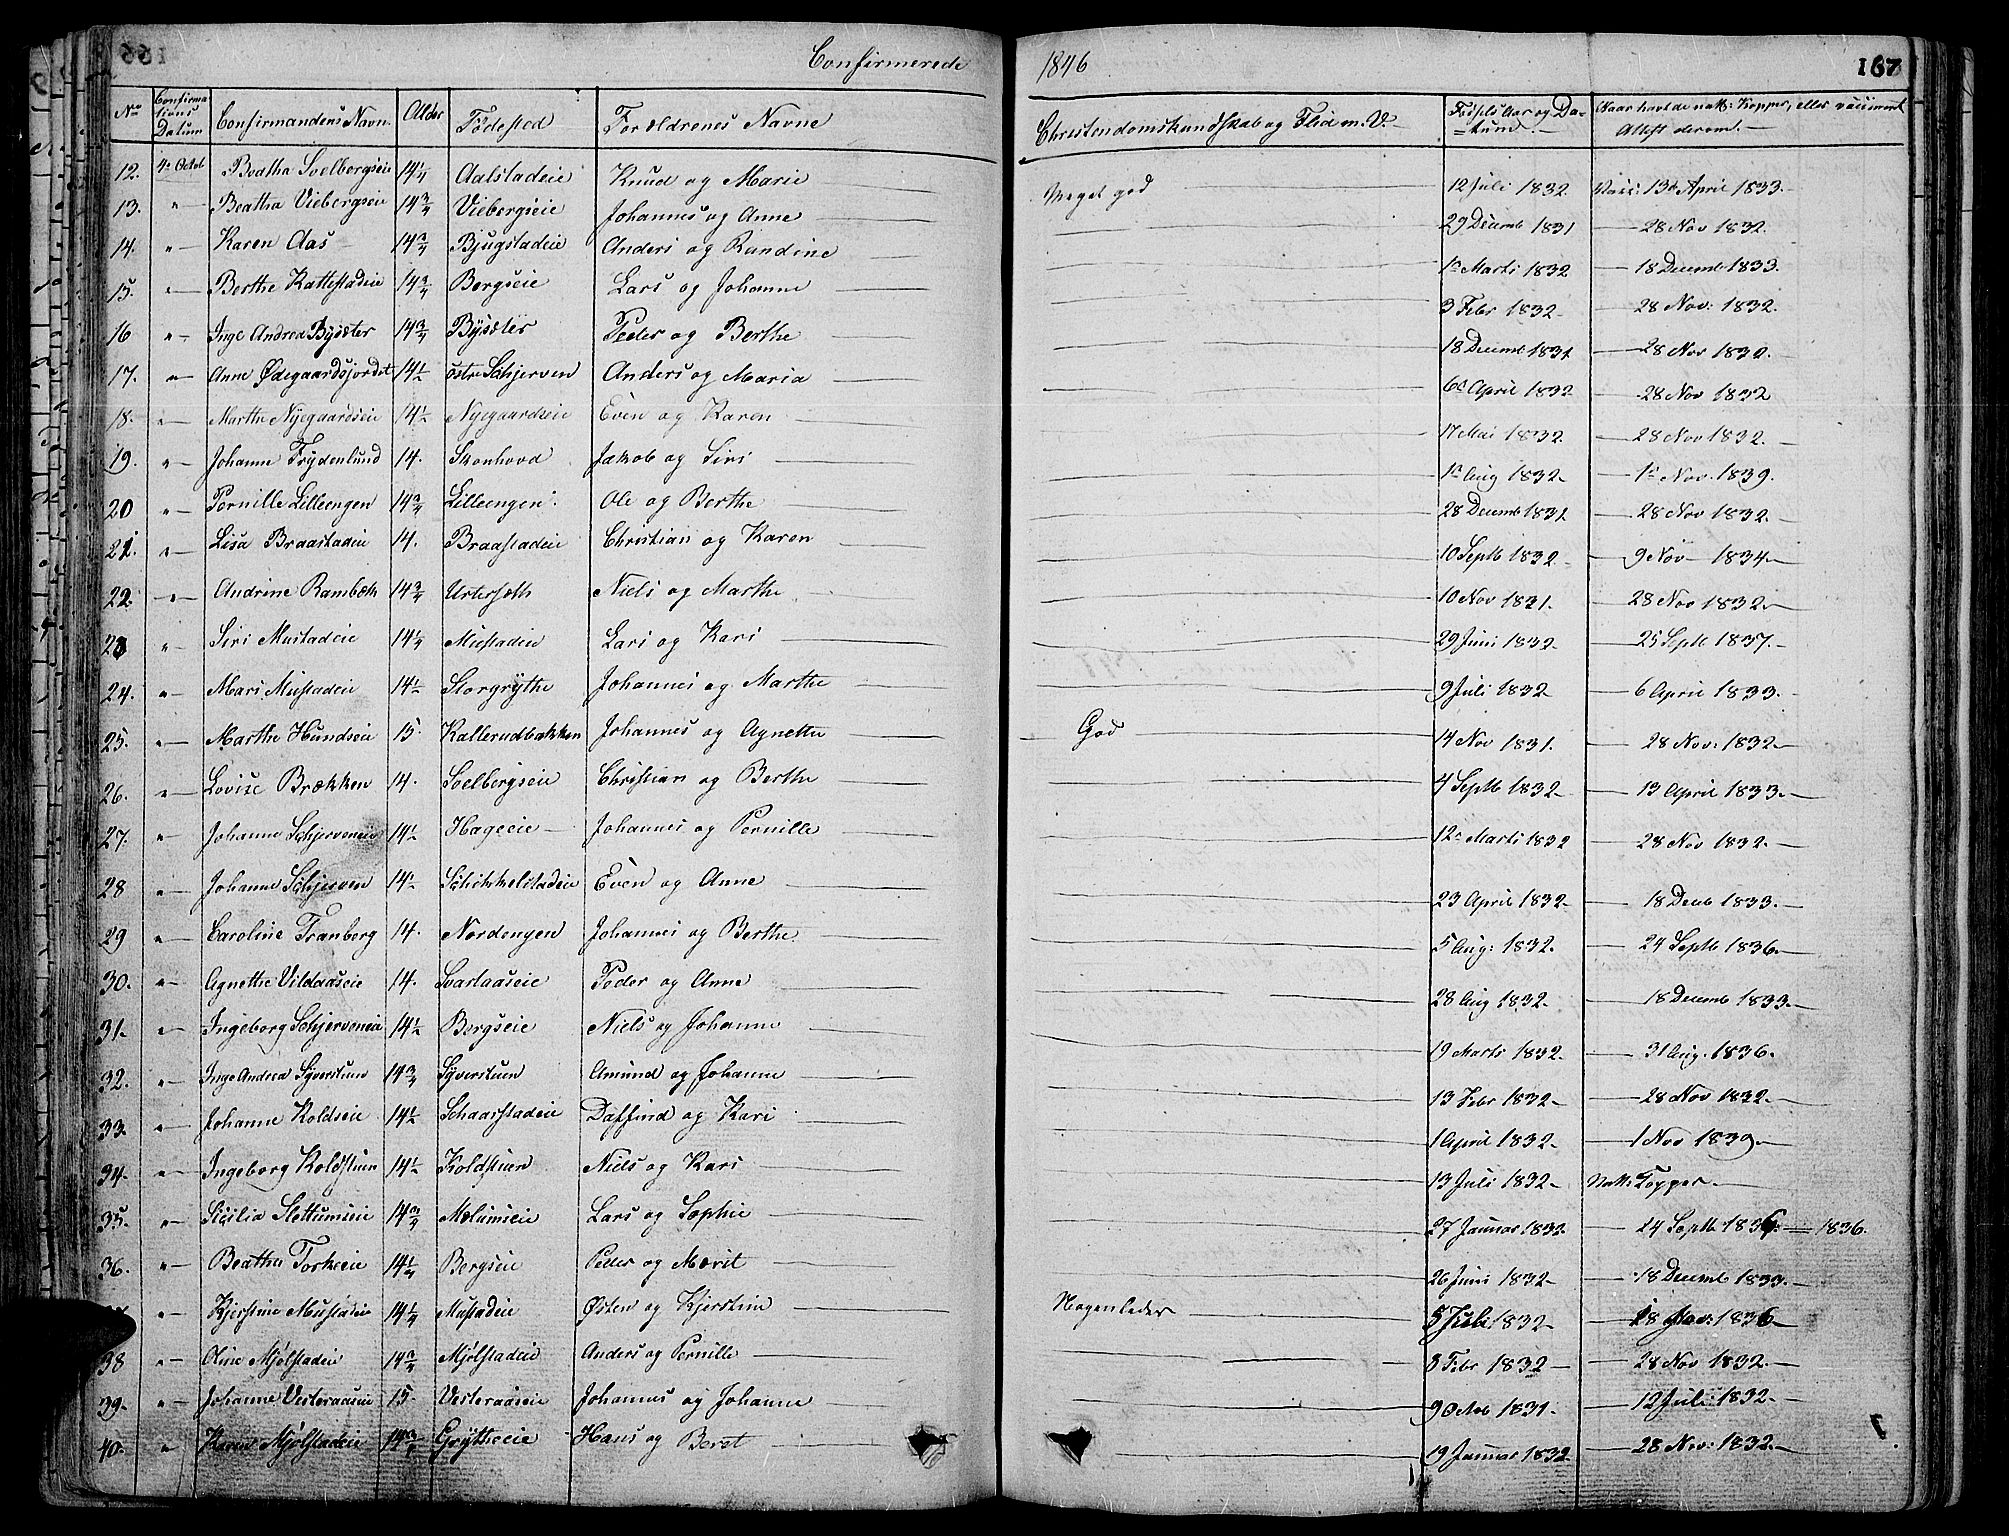 Confirmerede 1846 167
No Confirmations Datum Confirmandens Navn Alder Födested Forældrenes Navne Christendomskundskab og Flid m. V. Födsels Aar og Datum Naar havt de nat: Kopper, eller vaccineret Attest derom.
12. 4de Octob Beatha Soelbergseie 14¼ Aalstadeie Knud og Marie Meget god 12 Juli 1832 Vacc: 13de April 1833.
13. " Beatha Viebergseie 14¾ Viebergseie Johannes og Anne 29 Decemb 1831 28 Nov 1832.
14. " Karen Aas 14¾ Bjugstadeie Anders og Rundine 1ste Marts 1832 18 Decemb 1833.
15. " Berthe Kattestadeie 14¾ Bergseie Lars og Johanne 3 Febr 1832 28 Nov: 1832.
16 " Inge Andrea Bysæter 14¾ Bysæter Peder og Berthe 18 Decemb 1831 28 Nov 1832.
17. " Anne Ødegaardsjordet 14½ östre Schjerven Anders og Maria 6te April 1832 28 Nov 1832
18. " Marthe Nyegaardseie 14½ Nyegaardseie Even og Karen 17 Mai 1832 28 Nov 1832.
19. " Johanne Frydenlund 14. Skonhovd Jakob og Siri 1ste Aug 1832 1ste Nov. 1839.
20 " Pernille Lilleengen 14¾ Lilleengen Ole og Berthe 28 Decemb 1831 28 Nov 1832.
21. " Lisa Braastadeie 14. Braastadeie Christian og Karen 10 Septb 1832 9 Nov 1834
22. " Andrine Rambæk 14¾ Niels og Marthe 10 Nov 1831. 28 Nov 1832.
23 " Siri Mustadeie 14¼ Mustadeie Lars og Kari 29 Juni 1832 25 Septb 1837.
24. " Mari Mustadeie 14¼ Storgrythe Johannes og Marthe 9 Juli 1832 6 April 1833.
25. " Marthe Hundseie 15. Kallerudbakken Johannes og Agnethe God 14 Nov 1831. 28 Nov: 1832
26. " Lovise Brækken 14. Soelbergseie Christian og Berthe 4 Septb 1832 13 April 1833.
27. " Johanne Schjerveneie 14½ Hageeie Johannes og Pernille 12te Marts 1832 28 Nov 1832.
28 " Johanne Schjerven 14½ Schikkelstadeie Even og Anne 23 April 1832 18 Decb 1833.
29 " Caroline Tranberg 14. Nordengen Johannes og Berthe 5 Aug: 1832. 24 Septb 1836.
30. " Agnethe Vildaaseie 14. Svartaaseie Peder og Anne 28 Aug 1832. 18 Decemb 1833.
31. " Ingeborg Schjerveneie 14½ Bergseie Niels og Johanne 19 Marts 1832. 31 Aug. 1836.
32. " Inge Andrea Syverstuen 14¾ Syverstuen Amund og Johanne 13 Febr 1832 28 Nov 1832.
33. " Johanne Koldseie 14½ Schaarstadeie Daffind og Kari 1 April 1832 1 Nov 1839
34. " Ingeborg Koldstuen 14¼ Koldstuen Niels og Kari 13 Juli 1832 Natt: Kopper.
35. " Sicilia Slettumseie 14¾ Melumseie Lars og Sophie 27 Januar 1832. 24 Septb 1836 1836.
36. " Beatha Torkeeie 14¼ Bergseie Peder og Marit 26 Juni 1832 18 Decemb 1833.
" Kjerstine Mustadeie 14¼ Mustadeie Østen og Kjerstine Nogenledes 5 Juli 1832 18 Nov: 1836
38 " Oline Mjölstadeie 14¾ Mjölstadeie Anders og Pernille 8 Febr 1832 28 Nov 1832.
39. " Johanne Vesteraaseie 15. Vesteraaseie Johannes og Johanne 9 Octob 1831 12 Juli 1832.
40. " Karen Mjölstadeie 14¾ Grytheeie Hans og Beret 19 Januar 1832. 28 Nov: 1832.